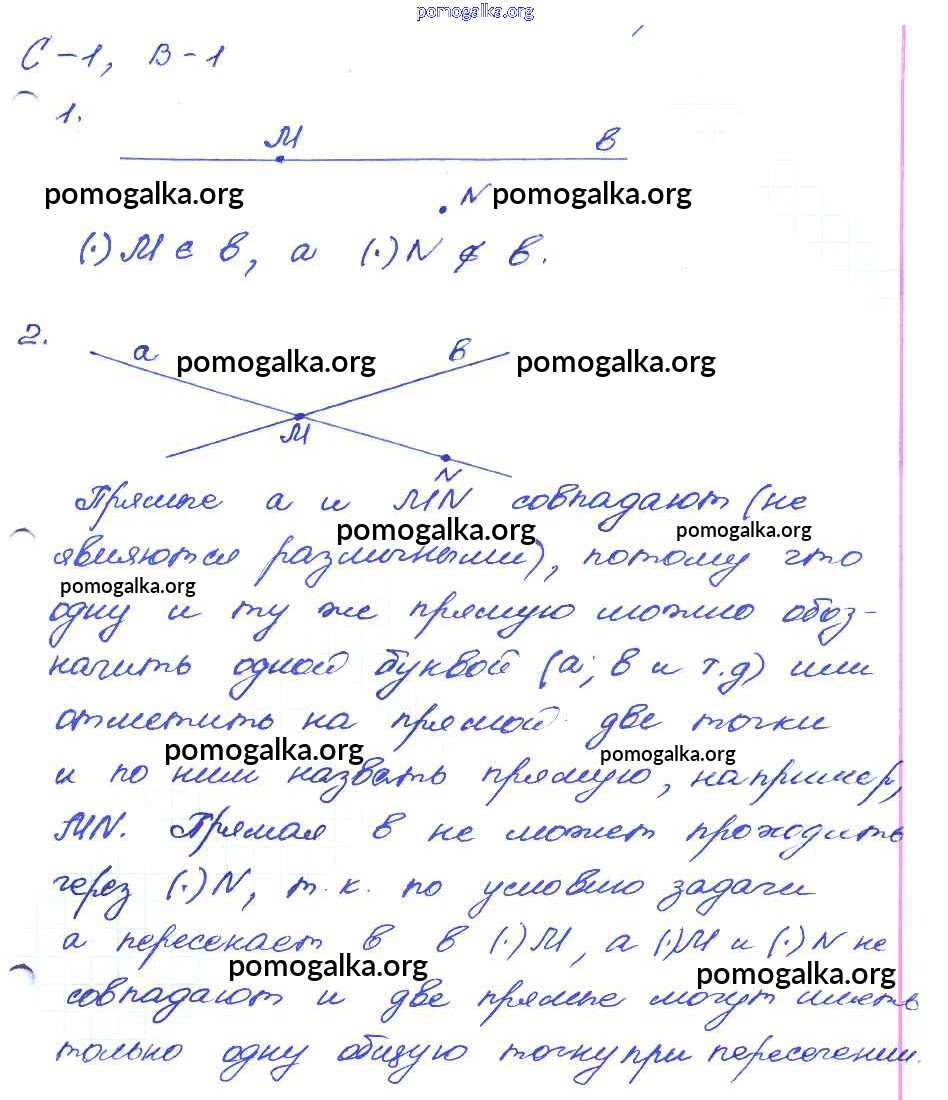 pomogalka.org
С-1, В-1
1.
M в
pomogalka.org N pomogalka.org
(·)M ∈ в, а (·)N ∉ в.
2.
а в
pomogalka.org pomogalka.org
M
N
Прямые а и MN совпадают (не
pomogalka.org pomogalka.org
являются различными), потому что
pomogalka.org
одну и ту же прямую можно обоз-
начить одной буквой (а; в и т.д) или
отметить на прямой две точки
pomogalka.org pomogalka.org
и по ним назвать прямую, например,
MN. Прямая в не может проходить
через (·)N, т.к. по условию задачи
а пересекает в в (·)M, а (·)M и (·)N не
pomogalka.org pomogalka.org
совпадают и две прямые могут иметь
только одну общую точку при пересечении.